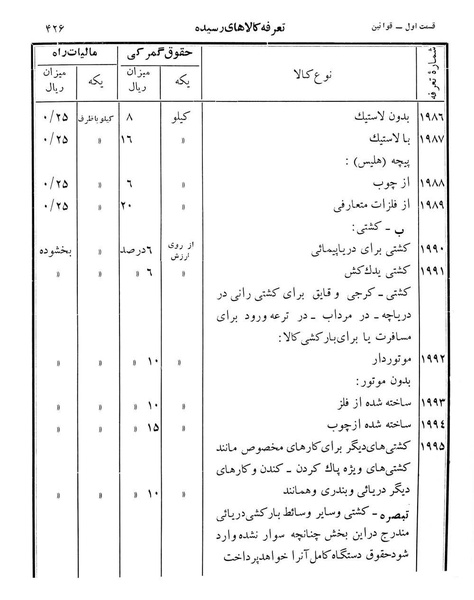 قسمت اول – قوانین تعرفه کالاهای رسیده ۴۲۶
شمارهٔ تعرفه نوع کالا حقوق گمرکی مالیات راه
یکه میزان ریال یکه میزان ریال
۱۹۸۶ بدون لاستیك کیلو ۸ کیلو باظرف ۰/۲۵
۱۹۸۷ با لاستیك » ۱۶ » ۰/۲۵
پیچه (هلیس) :
۱۹۸۸ از چوب » ۶ » ۰/۲۵
۱۹۸۹ از فلزات متعارفی » ۲۰ » ۰/۲۵
ب – کشتی :
۱۹۹۰ کشتی برای دریاپیمائی از روی ارزش ۶ درصد » بخشوده
۱۹۹۱ کشتی یدك کش » ۶ » » »
کشتی – کرجی و قایق برای کشتی رانی در
دریاچه – در مرداب – در ترعه ورود برای
مسافرت یا برای بارکشی کالا :
۱۹۹۲ موتوردار » ۱۰ » » »
بدون موتور :
۱۹۹۳ ساخته شده از فلز » ۱۰ » » »
۱۹۹٤ ساخته شده ازچوب » ۱۵ » » »
۱۹۹۵ کشتی‌های دیگر برای کارهای مخصوص مانند
کشتی‌های ویژه پاك کردن – کندن و کارهای
دیگر دریائی وبندری وهمانند » ۱۰ » » »
تبصره – کشتی وسایر وسائط بارکشی دریائی
مندرج دراین بخش چنانچه سوار نشده وارد
شود حقوق دستگاه کامل آنرا خواهد پرداخت